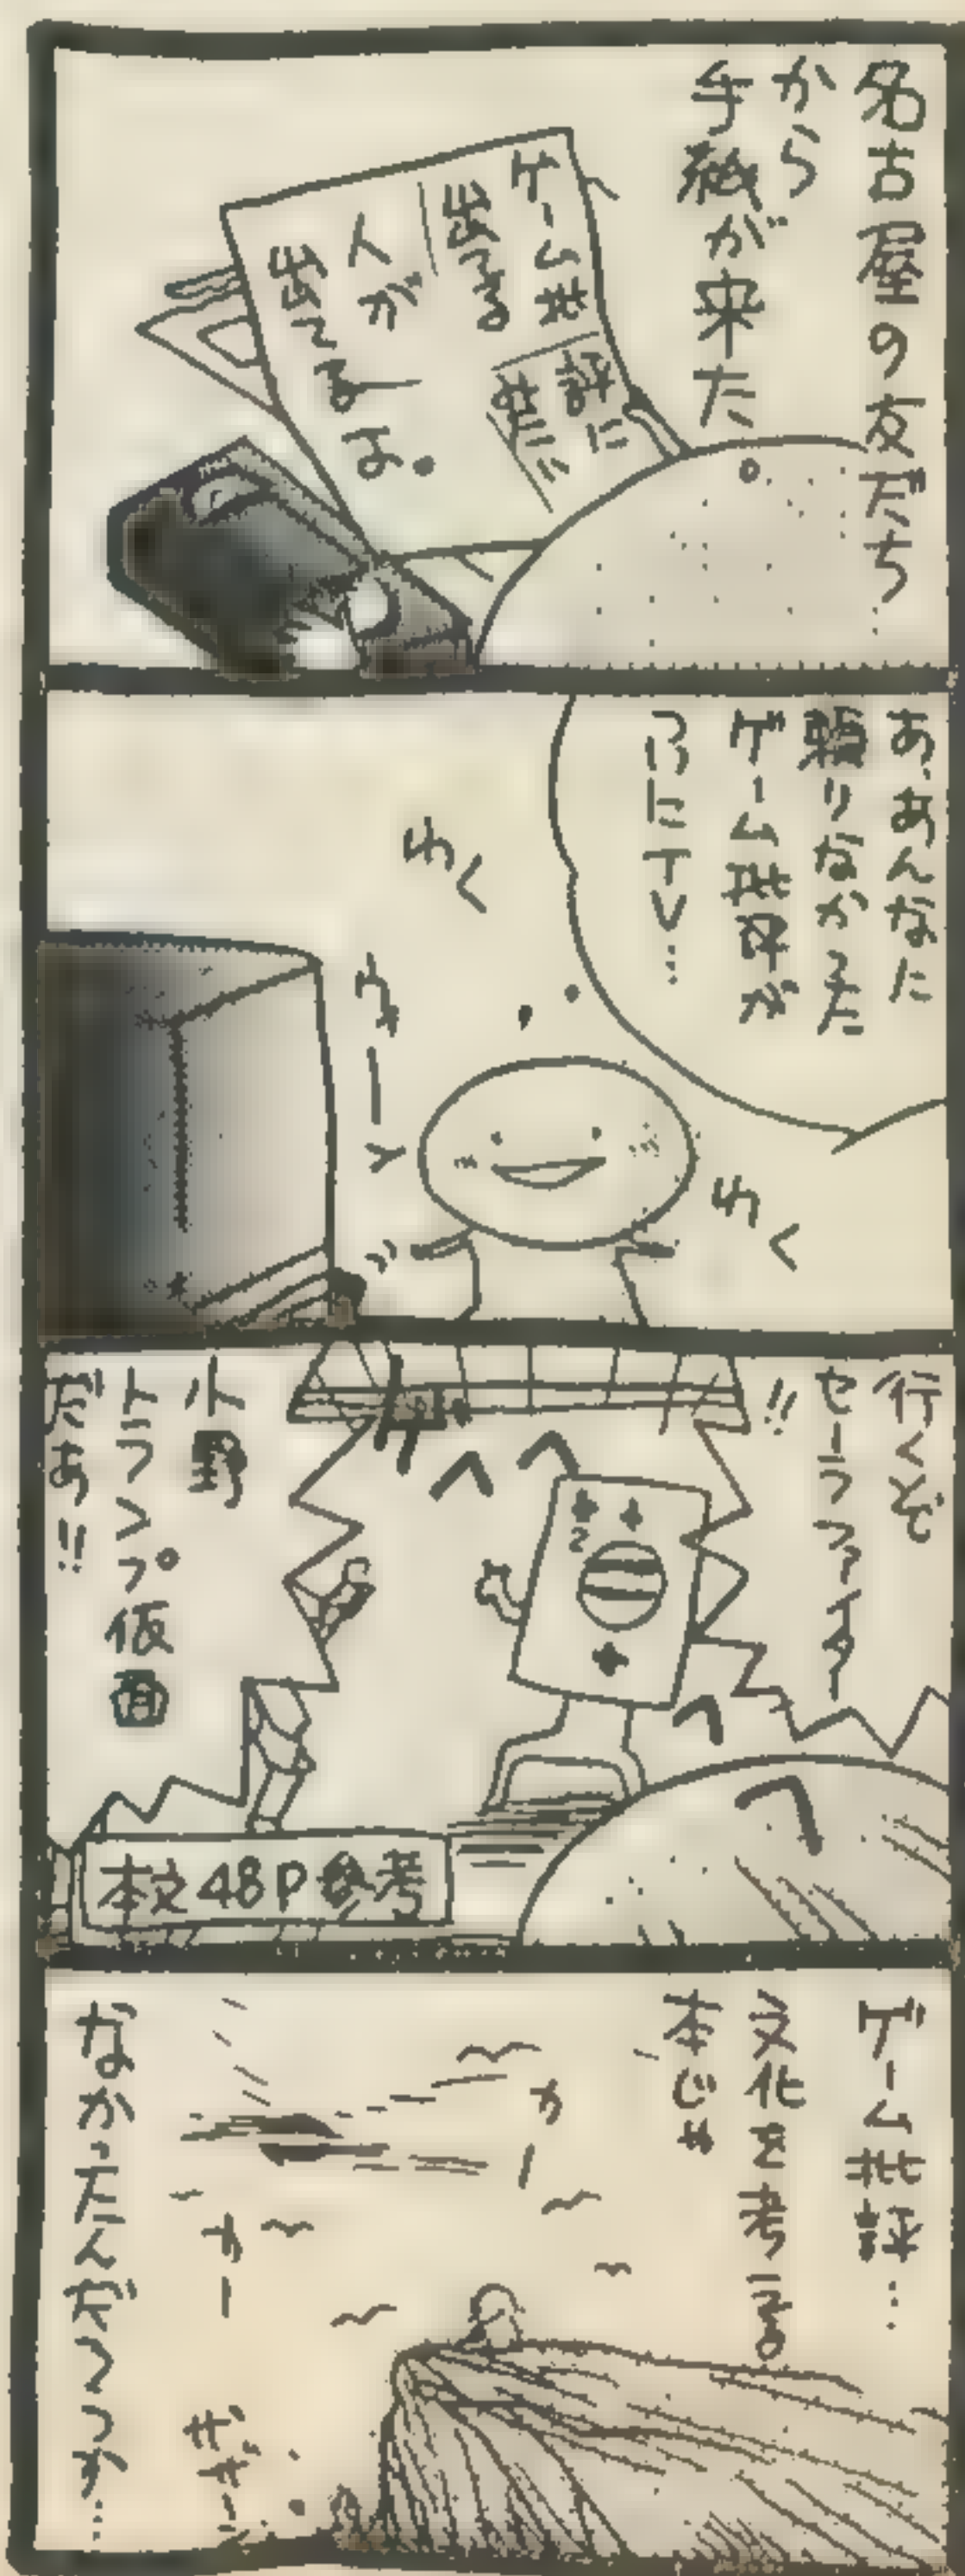 名古屋の友だち
から
手紙が来た。
ゲーム批
評に
出てる
人が
出てるよ。
あ、あんなに
頼りなかった
ゲーム批評が
ついにTV…
わく
わく
行くぞ
セーラファイター
!!
2
小野
トランプ仮面
だあ!!
本文48P参考
ゲーム批評…
文化を考える
本じゃ
カー
カー
なかったんだ